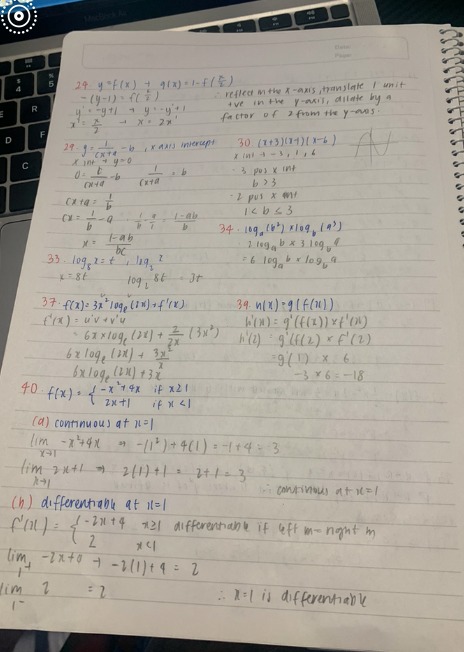 24. y=f(x) → g(x)=1-f(x/2)
-(y-1)=f(x/2)
-y'=-y+1 → y=-y'+1
x'=x/2 → x=2x'
∴ reflect in the x-axis, translate 1 unit
+ve in the y-axis, dilate by a
factor of 2 from the y-axis.
29. y=1/(cx+a)-b, x axis intercept
x int → y=0
0=1/(cx+a)-b 1/(cx+a)=b
cx+a=1/b
cx=1/b-a 1-ab/b
x=1-ab/bc
30. (x+3)(x-1)(x-6)
x int → -3, 1, 6
3 pos x int
b>3
2 pos x int
1<b≤3
33. log₈x=t, log₂x
x=8t log₂8t = 3t
34. logₐ(b²)×log_b(a³)
2logₐb × 3log_b a
=6logₐb × log_b a
37. f(x)=3x²logₑ(2x) → f'(x)
f'(x)=u'v+v'u
=6x×logₑ(2x)+2/2x(3x²)
6xlogₑ(2x)+3x²/x
6xlogₑ(2x)+3x
39. h(x)=g(f(x))
h'(x)=g'(f(x))×f'(x)
h'(2)=g'(f(2)×f'(2)
=g'(1) × 6
-3×6=-18
40. f(x)={-x²+4x if x≥1
2x+1 if x<1
(a) continuous at x=1
lim x→1 -x²+4x ⇒ -(1²)+4(1)=-1+4=3
lim x→1 2x+1 ⇒ 2(1)+1=2+1=3
∴ continuous at x=1
(b) differentiable at x=1
f'(x)={-2x+4 x≥1 differentiable if left m=right m
2 x<1
lim 1⁺ -2x+4 → -2(1)+4=2
lim 1⁻ 2 =2 ∴ x=1 is differentiable